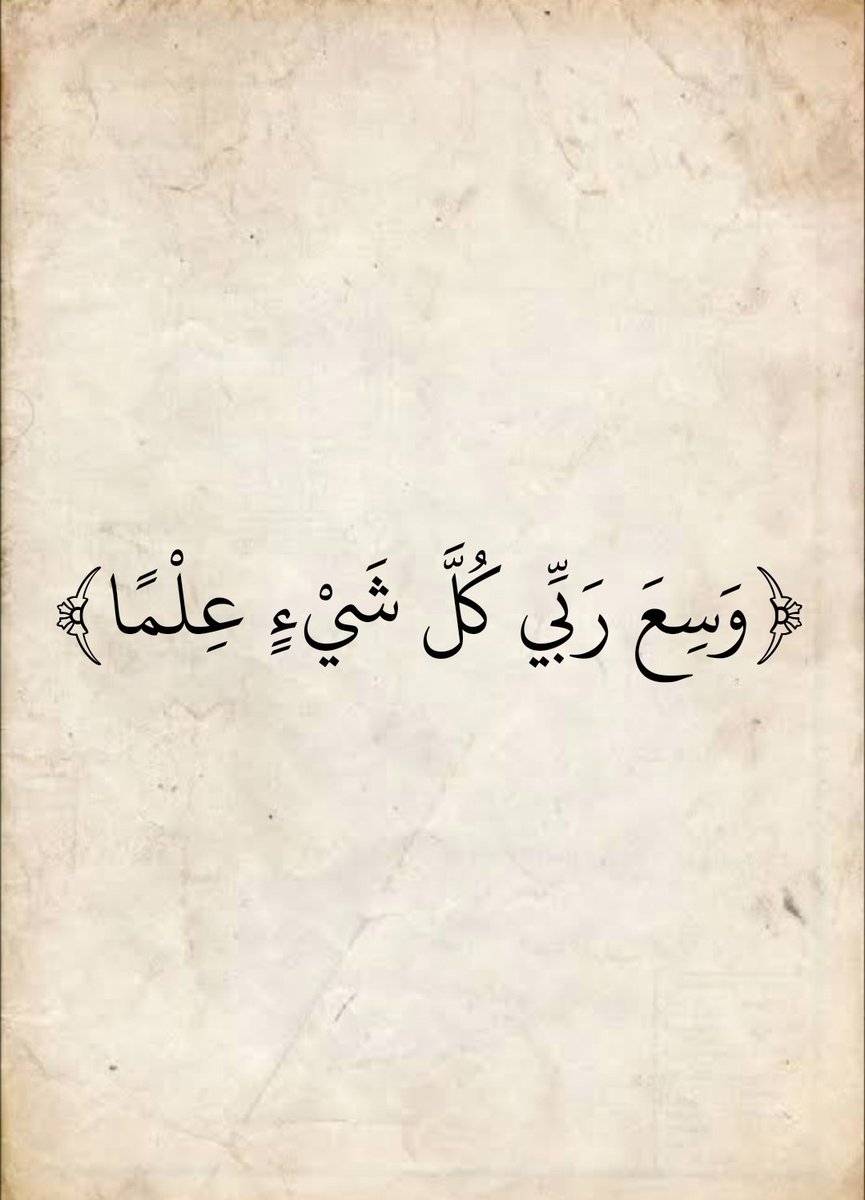 ﴿وَسِعَ رَبِّي كُلَّ شَيْءٍ عِلْمًا﴾